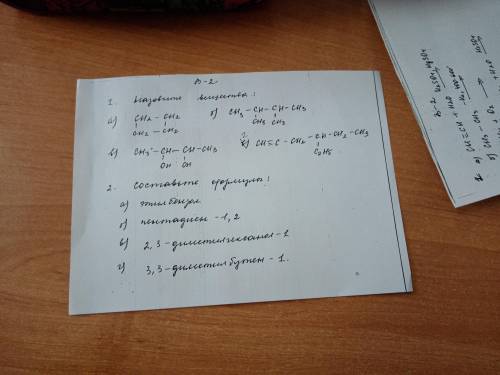 В-2
1. Назовите вещества:
а) CH2 - CH2 б) CH3 - CH - CH - CH3
CH2 - CH2 CH3 CH3
в) CH3 - CH - CH - CH3 г) CH≡C - CH2 - CH - CH2 - CH3
OH OH C2H5
2. Составьте формулы:
а) этилбензол
б) пентадиен - 1,2
в) 2,3-диметилгексанол-1
г) 3,3-диметилбутен-1.
В-2
а) CH≡CH + H2O